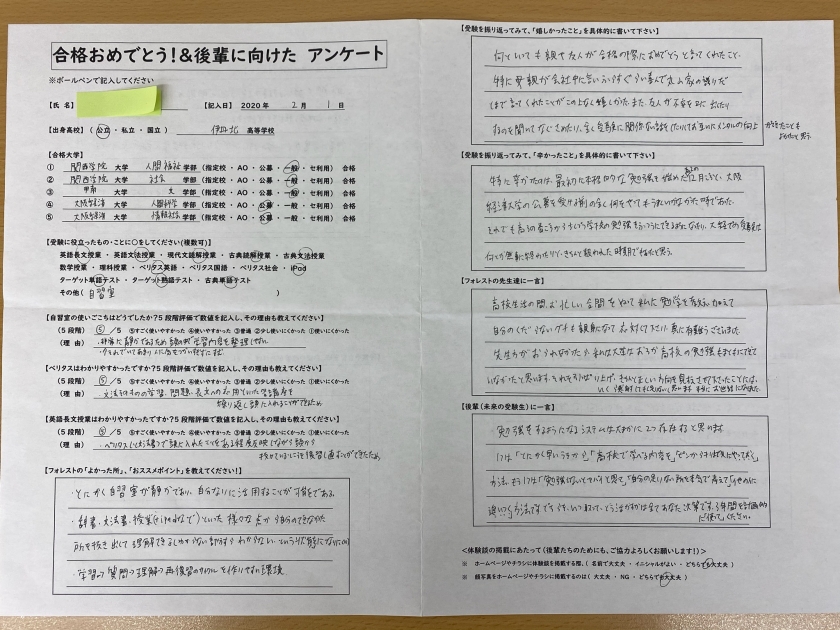 合格おめでとう!&後輩に向けた アンケート
※ボールペンで記入してください
【氏 名】
【記入日】 2020年 2月 1日
【出身高校】 ( 公立 ・ 私立 ・ 国立 ) 伊丹北 高等学校
【合格大学】
① 関西学院 大学 人間福祉 学部 (指定校・AO・公募・一般・セ利用) 合格
② 関西学院 大学 社会 学部 (指定校・AO・公募・一般・セ利用) 合格
③ 甲南 大学 文 学部 (指定校・AO・公募・一般・セ利用) 合格
④ 大阪経済 大学 人間科学 学部 (指定校・AO・公募・一般・セ利用) 合格
⑤ 大阪経済 大学 情報社会 学部 (指定校・AO・公募・一般・セ利用) 合格
【受験に役立ったもの・ことに○をしてください(複数可)】
英語長文授業 ・ 英語文法授業 ・ 現代文読解授業 ・ 古典読解授業 ・ 古典文法授業
数学授業 ・ 理科授業 ・ ベリタス英語 ・ ベリタス国語 ・ ベリタス社会 ・ iPod
ターゲット単語テスト ・ ターゲット熟語テスト ・ 古典単語テスト
その他( 自習室 )
【自習室の使いごこちはどうでしたか?5段階評価で数値を記入し、その理由も教えてください】
(5段階) ⑤ /5 ⑤すごく使いやすかった ④使いやすかった ③普通 ②少し使いにくかった ①使いにくかった
(理由) ・非常に静かであるため
【ベリタスはわかりやすかったですか?5段階評価で数値を記入し、その理由も教えてください】
(5段階) ⑤ /5 ⑤すごく使いやすかった ④使いやすかった ③普通 ②少し使いにくかった ①使いにくかった
(理由) ・文法そのものの学習、問題、長文への応用
繰り返し頭に入れることができたため
【英語長文授業はわかりやすかったですか?5段階評価で数値を記入し、その理由も教えてください】
(5段階) ⑤ /5 ⑤すごく使いやすかった ④使いやすかった ③普通 ②少し使いにくかった ①使いにくかった
(理由) ・ベリタス 頭に入れたことをある程度反映しながら
復習し直すことができたため
【フォレストの「よかった所」、「おススメポイント」を教えてください!】
・とにかく自習室が静かであり、自分なりに活用することが可能である。
・辞書・文法書・授業(ipodなどで)といった様々な点から自分のできなかった
所を抜き出して理解できるし、わからない部分もわからないという状態になりにくい
・学習→質問→理解→再復習のサイクルを作りやすい環境
【受験を振り返ってみて、「嬉しかったこと」を具体的に書いて下さい】
何といっても親や友人が合格の際におめでとうと言ってくれたこと。
特に母親が会社中に言いふらすぐらい喜んで
まで言ってくれたことがこの上なく嬉しかった。また、友人が不安を口に出したり
なのを聞いてなぐさめたり、全く受験に関係ない話をしたりしてお互いにメンタルの向上
ができたことも
よかったと思う。
【受験を振り返ってみて、「辛かったこと」を具体的に書いて下さい】
特に辛かったのは、最初に本格的な勉強を始めた 12月 大阪
経済大学の公募を受ける前の全く何をやってもうまくいかなかった時であった。
それでも
何より無事に終わったので、きちんと報われた時期であったと思う。
【フォレストの先生達に一言】
高校生活の間、お忙しい合間をぬって私に勉学を教え、加えて
自分のくだらないグチも親身になって応対して下さり、真に有難うございました。
先生方がおられなかったら、私は大学はおろか高校の勉強もまともにできて
いなかったと思います。それを引っぱり上げ、きちんと正しい方向を見せて下さったことには、
いくら感謝してもしきれないと思います。本当にお世話になりました。
【後輩(未来の受験生)に一言】
・勉強をするようになるシステムは大まかに2つ存在すると思います
1つは「とにかく早いうちから」「高校で学べる内容を」
方法、もう1つは「勉強しないとヤバイと思って」「自分の足りない所を本気で考えて」
追いつく方法です。でもいつ、どう活かすかは全てあなた次第です。3年間を計画的
に使ってください。
<体験談の掲載にあたって(後輩たちのためにも、ご協力よろしくお願いします!)>
※ ホームページやチラシに体験談を掲載する際、( 名前で大丈夫 ・ イニシャルがよい ・ どちらでも大丈夫 )
※ 顔写真をホームページやチラシに掲載するのは ( 大丈夫 ・ NG ・ どちらでも大丈夫 )